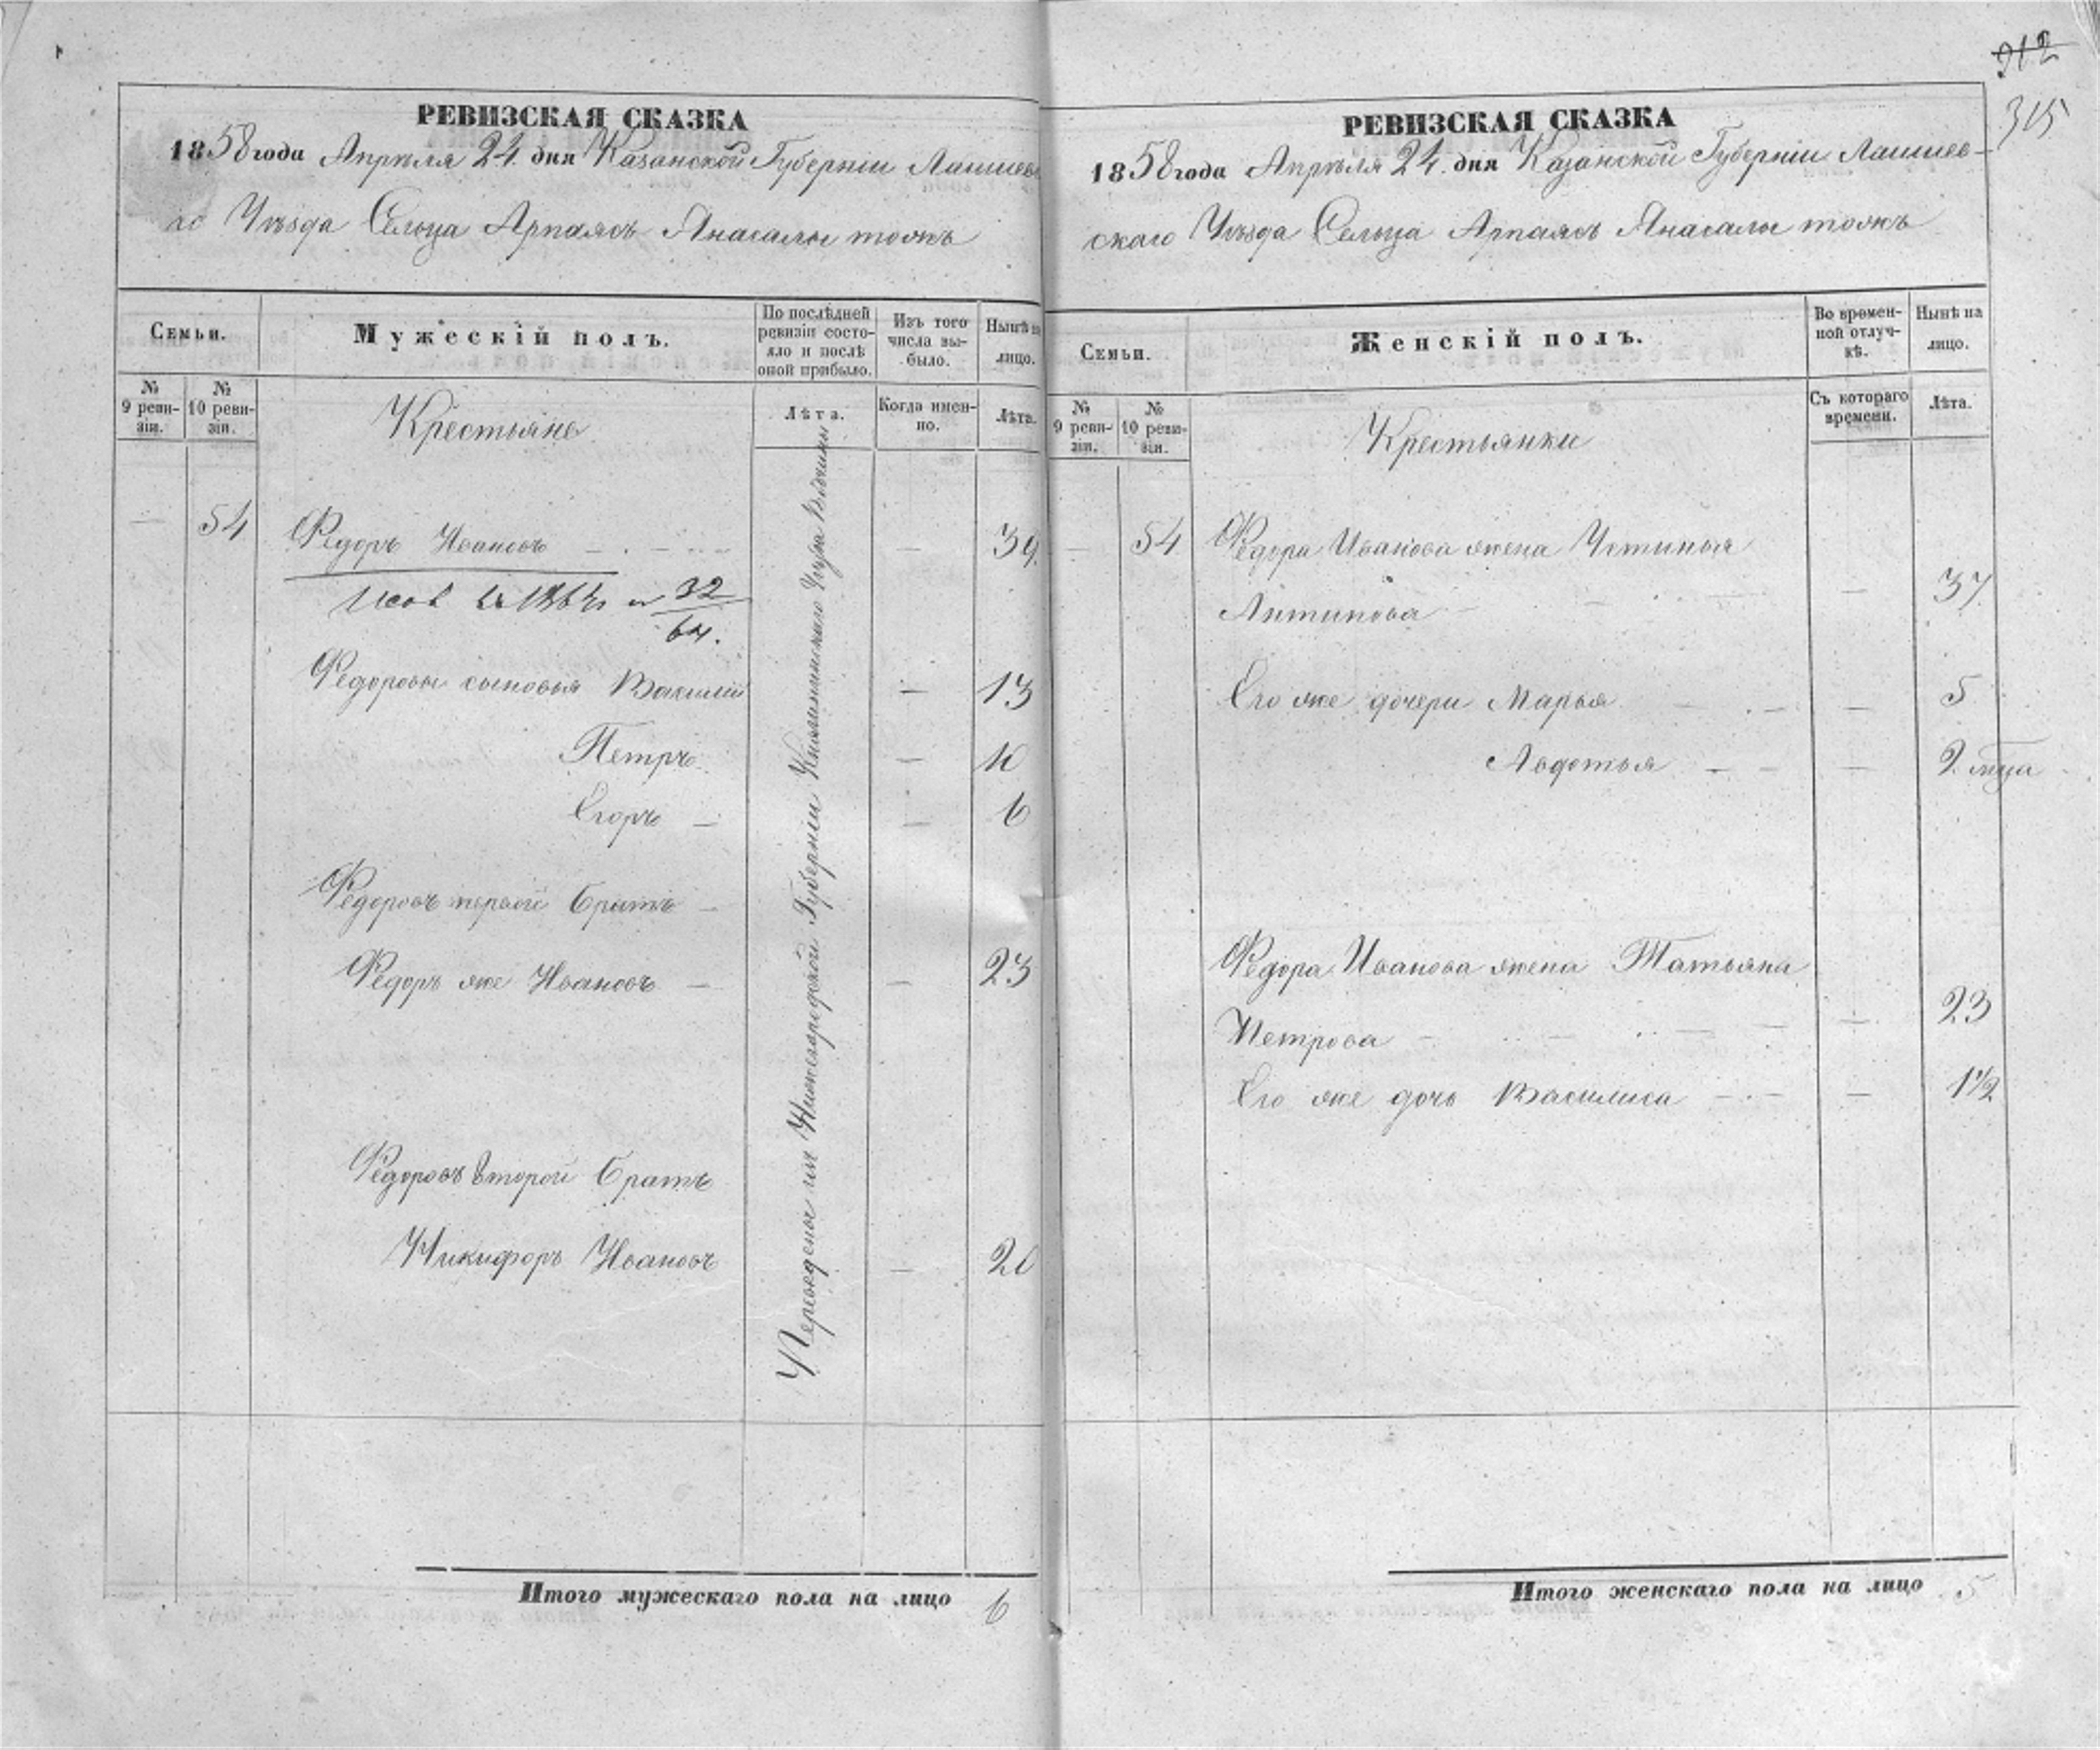 РЕВИЗСКАЯ СКАЗКА
1858 года Апрѣля 24. дня Казанской Губерніи Лаишев
го Уѣзда Сельца Арпаясъ Янасалы тожъ
Семьи.
Мужескій полъ.
По послѣдней ревизіи состояло и послѣ оной прибыло.
Изъ того числа выбыло.
Нынѣ на лицо.
№ 9 ревизіи.
№ 10 ревизіи.
Крестьяне
Лѣта.
Когда именно.
Лѣта.
— 54 Федоръ Ивановъ — 39
32
64.
Федоровы сыновья Василій — 13
Петръ — 10
Егоръ — 6
Федоровъ первой братъ
Федоръ же Ивановъ — 23
Федоровъ второй братъ
Никифоръ Ивановъ — 20
Переведены изъ Нижегородской Губерніи Княгининскаго Уѣзда
Итого мужескаго пола на лицо 6
312
315
РЕВИЗСКАЯ СКАЗКА
1858 года Апрѣля 24. дня Казанской Губерніи Лаишев-
скаго Уѣзда Сельца Арпаясъ Янасалы тожъ
Семьи.
Женскій полъ.
Во временной отлучкѣ.
Нынѣ на лицо.
№ 9 ревизіи.
№ 10 ревизіи.
Крестьянки
Съ котораго времени.
Лѣта.
— 54 Федора Иванова жена Устинья
Антипова — 37
Его же дочери Марья — 5
Авдотья — 2 мѣсяца
Федора Иванова жена Татьяна
Петрова — 23
Его же дочь Василиса — 1½
Итого женскаго пола на лицо 5